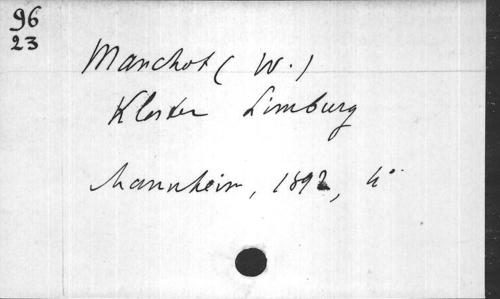 96
23
Manchot (W.)
Kloster Limburg
Mannheim, 1892, 4°